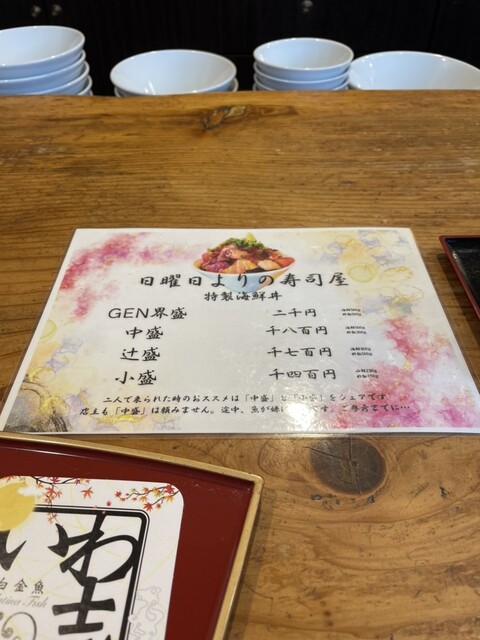 日曜日よりの寿司屋
特製海鮮丼
GEN界盛 二千円
中盛 千八百円
辻盛 千七百円
小盛 千四百円
二人で来られた時のオススメは「中盛」と「小盛」をシェアです
店主も「中盛」は頼みません。途中、魚が
いわ士
白金魚
Fish